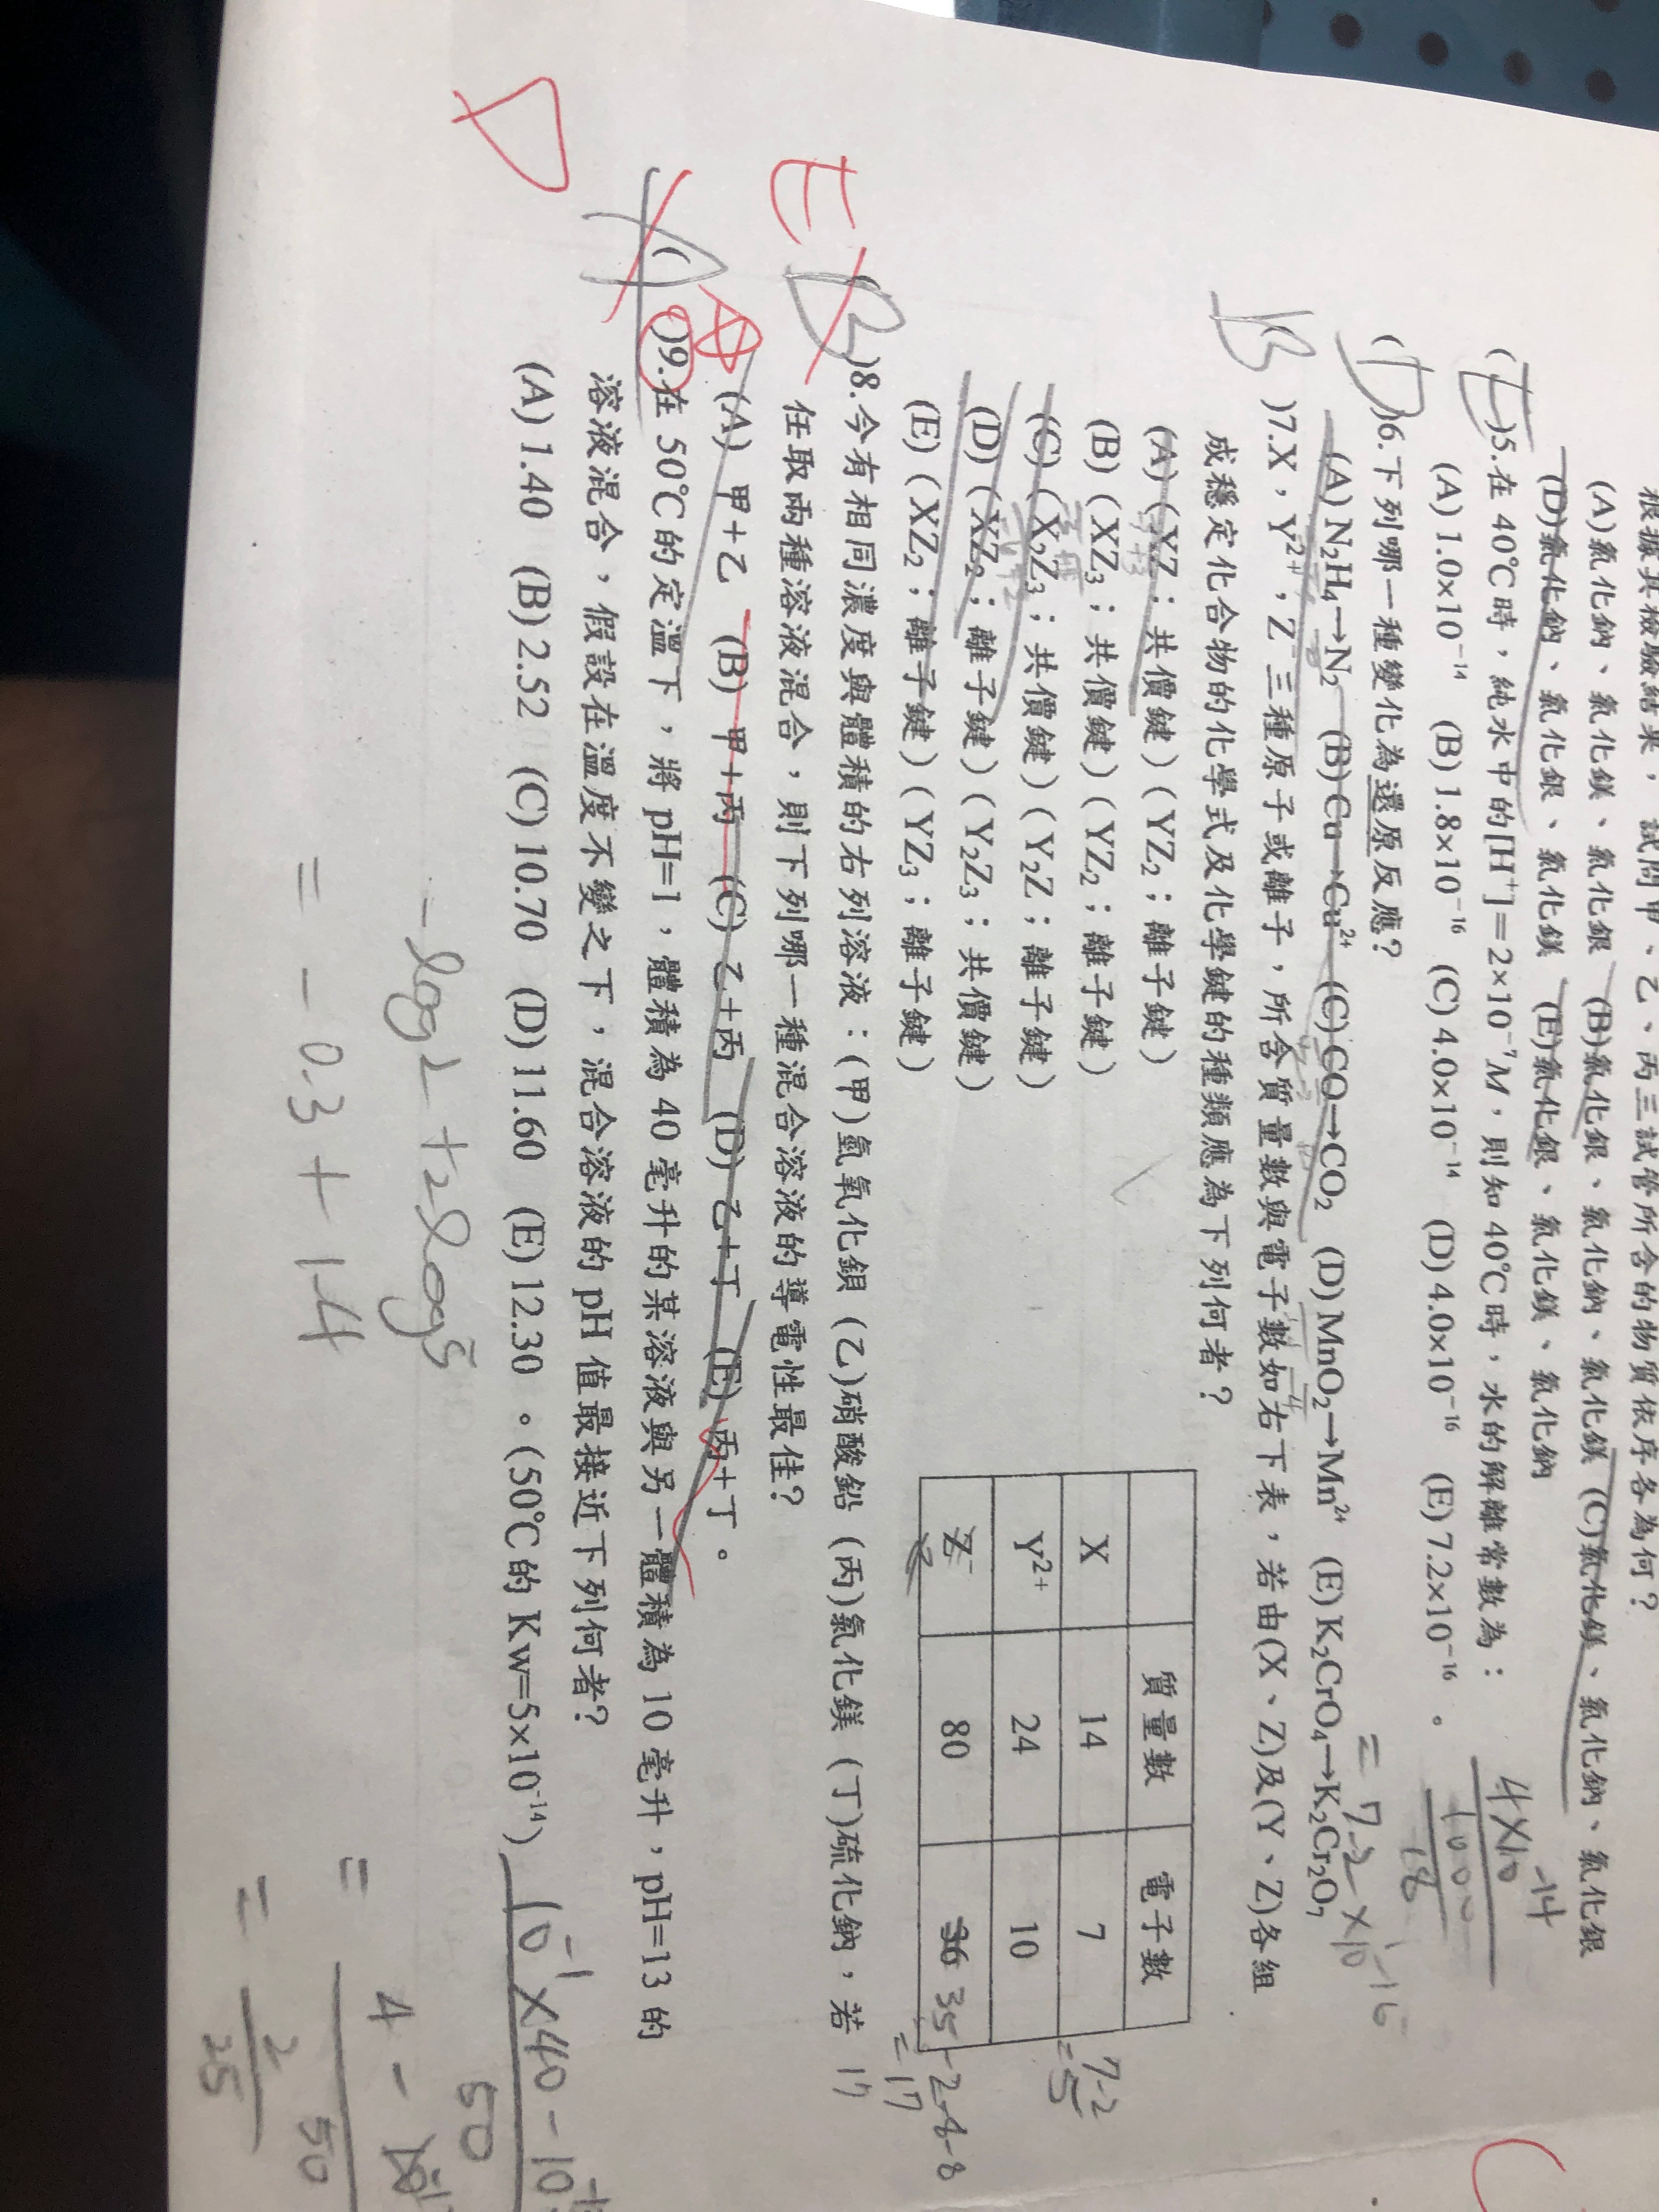 根據其檢驗結果，試問甲、乙、丙三試管所含的物質依序各為何？
(A)氯化鈉、氯化鎂、氯化銀 (B)氯化銀、氯化鈉、氯化鎂 (C)氯化鎂、氯化鈉、氯化銀
(D)氯化鈉、氯化銀、氯化鎂 (E)氯化銀、氯化鎂、氯化鈉
(E)5.在 40℃時，純水中的[H⁺]＝2×10⁻⁷M，則知 40℃時，水的解離常數為：
(A) 1.0×10⁻¹⁴ (B) 1.8×10⁻¹⁶ (C) 4.0×10⁻¹⁴ (D) 4.0×10⁻¹⁶ (E) 7.2×10⁻¹⁶ 。
4×10⁻¹⁴
1000
18
= 7.2×10⁻¹⁶
(D)6.下列哪一種變化為還原反應？
(A) N₂H₄→N₂ (B) Cu→Cu²⁺ (C) CO→CO₂ (D) MnO₂→Mn²⁺ (E) K₂CrO₄→K₂Cr₂O₇
(B)7.X，Y²⁺，Z⁻三種原子或離子，所含質量數與電子數如右下表，若由(X、Z)及(Y、Z)各組
成穩定化合物的化學式及化學鍵的種類應為下列何者？
(A)（XZ；共價鍵）（YZ₂；離子鍵）
(B)（XZ₃；共價鍵）（YZ₂；離子鍵）
(C)（X₂Z₃；共價鍵）（Y₂Z；離子鍵）
(D)（XZ₂；離子鍵）（Y₂Z₃；共價鍵）
(E)（XZ₂；離子鍵）（YZ₃；離子鍵）
質量數 電子數
X 14 7
Y²⁺ 24 10
Z⁻ 80 36 35
7-2
=5
-2-8-8
=17
17
E
(B)8.今有相同濃度與體積的右列溶液：(甲)氫氧化鋇 (乙)硝酸鉛 (丙)氯化鎂 (丁)硫化鈉，若
任取兩種溶液混合，則下列哪一種混合溶液的導電性最佳？
(A) 甲＋乙 (B) 甲＋丙 (C) 乙＋丙 (D) 乙＋丁 (E) 丙＋丁 。
D
(A)9.在 50℃的定溫下，將 pH=1，體積為 40 毫升的某溶液與另一體積為 10 毫升，pH=13 的
溶液混合，假設在溫度不變之下，混合溶液的 pH 值最接近下列何者？
(A) 1.40 (B) 2.52 (C) 10.70 (D) 11.60 (E) 12.30 。(50℃的 Kw=5×10⁻¹⁴)
-log2+2log5
= -0.3+14
10⁻¹×40-10
50
=
4-
50
= 2
25